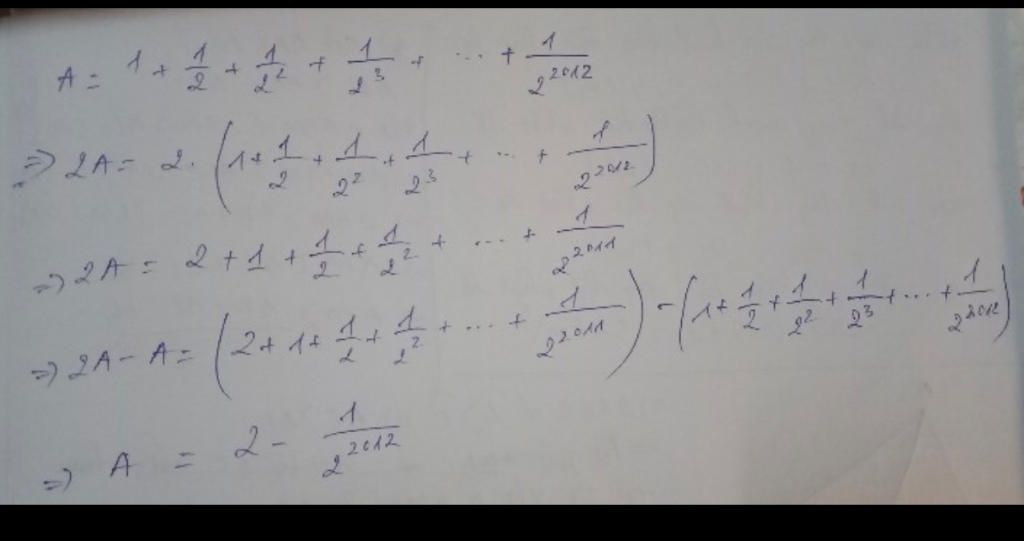 A = 1 + 1/2 + 1/2² + 1/2³ + ... + 1/2²⁰¹²
=> 2A = 2. (1 + 1/2 + 1/2² + 1/2³ + ... + 1/2²⁰¹²)
=> 2A = 2 + 1 + 1/2 + 1/2² + ... + 1/2²⁰¹¹
=> 2A - A = (2 + 1 + 1/2 + 1/2² + ... + 1/2²⁰¹¹) - (1 + 1/2 + 1/2² + 1/2³ + ... + 1/2²⁰¹²)
=> A = 2 - 1/2²⁰¹²